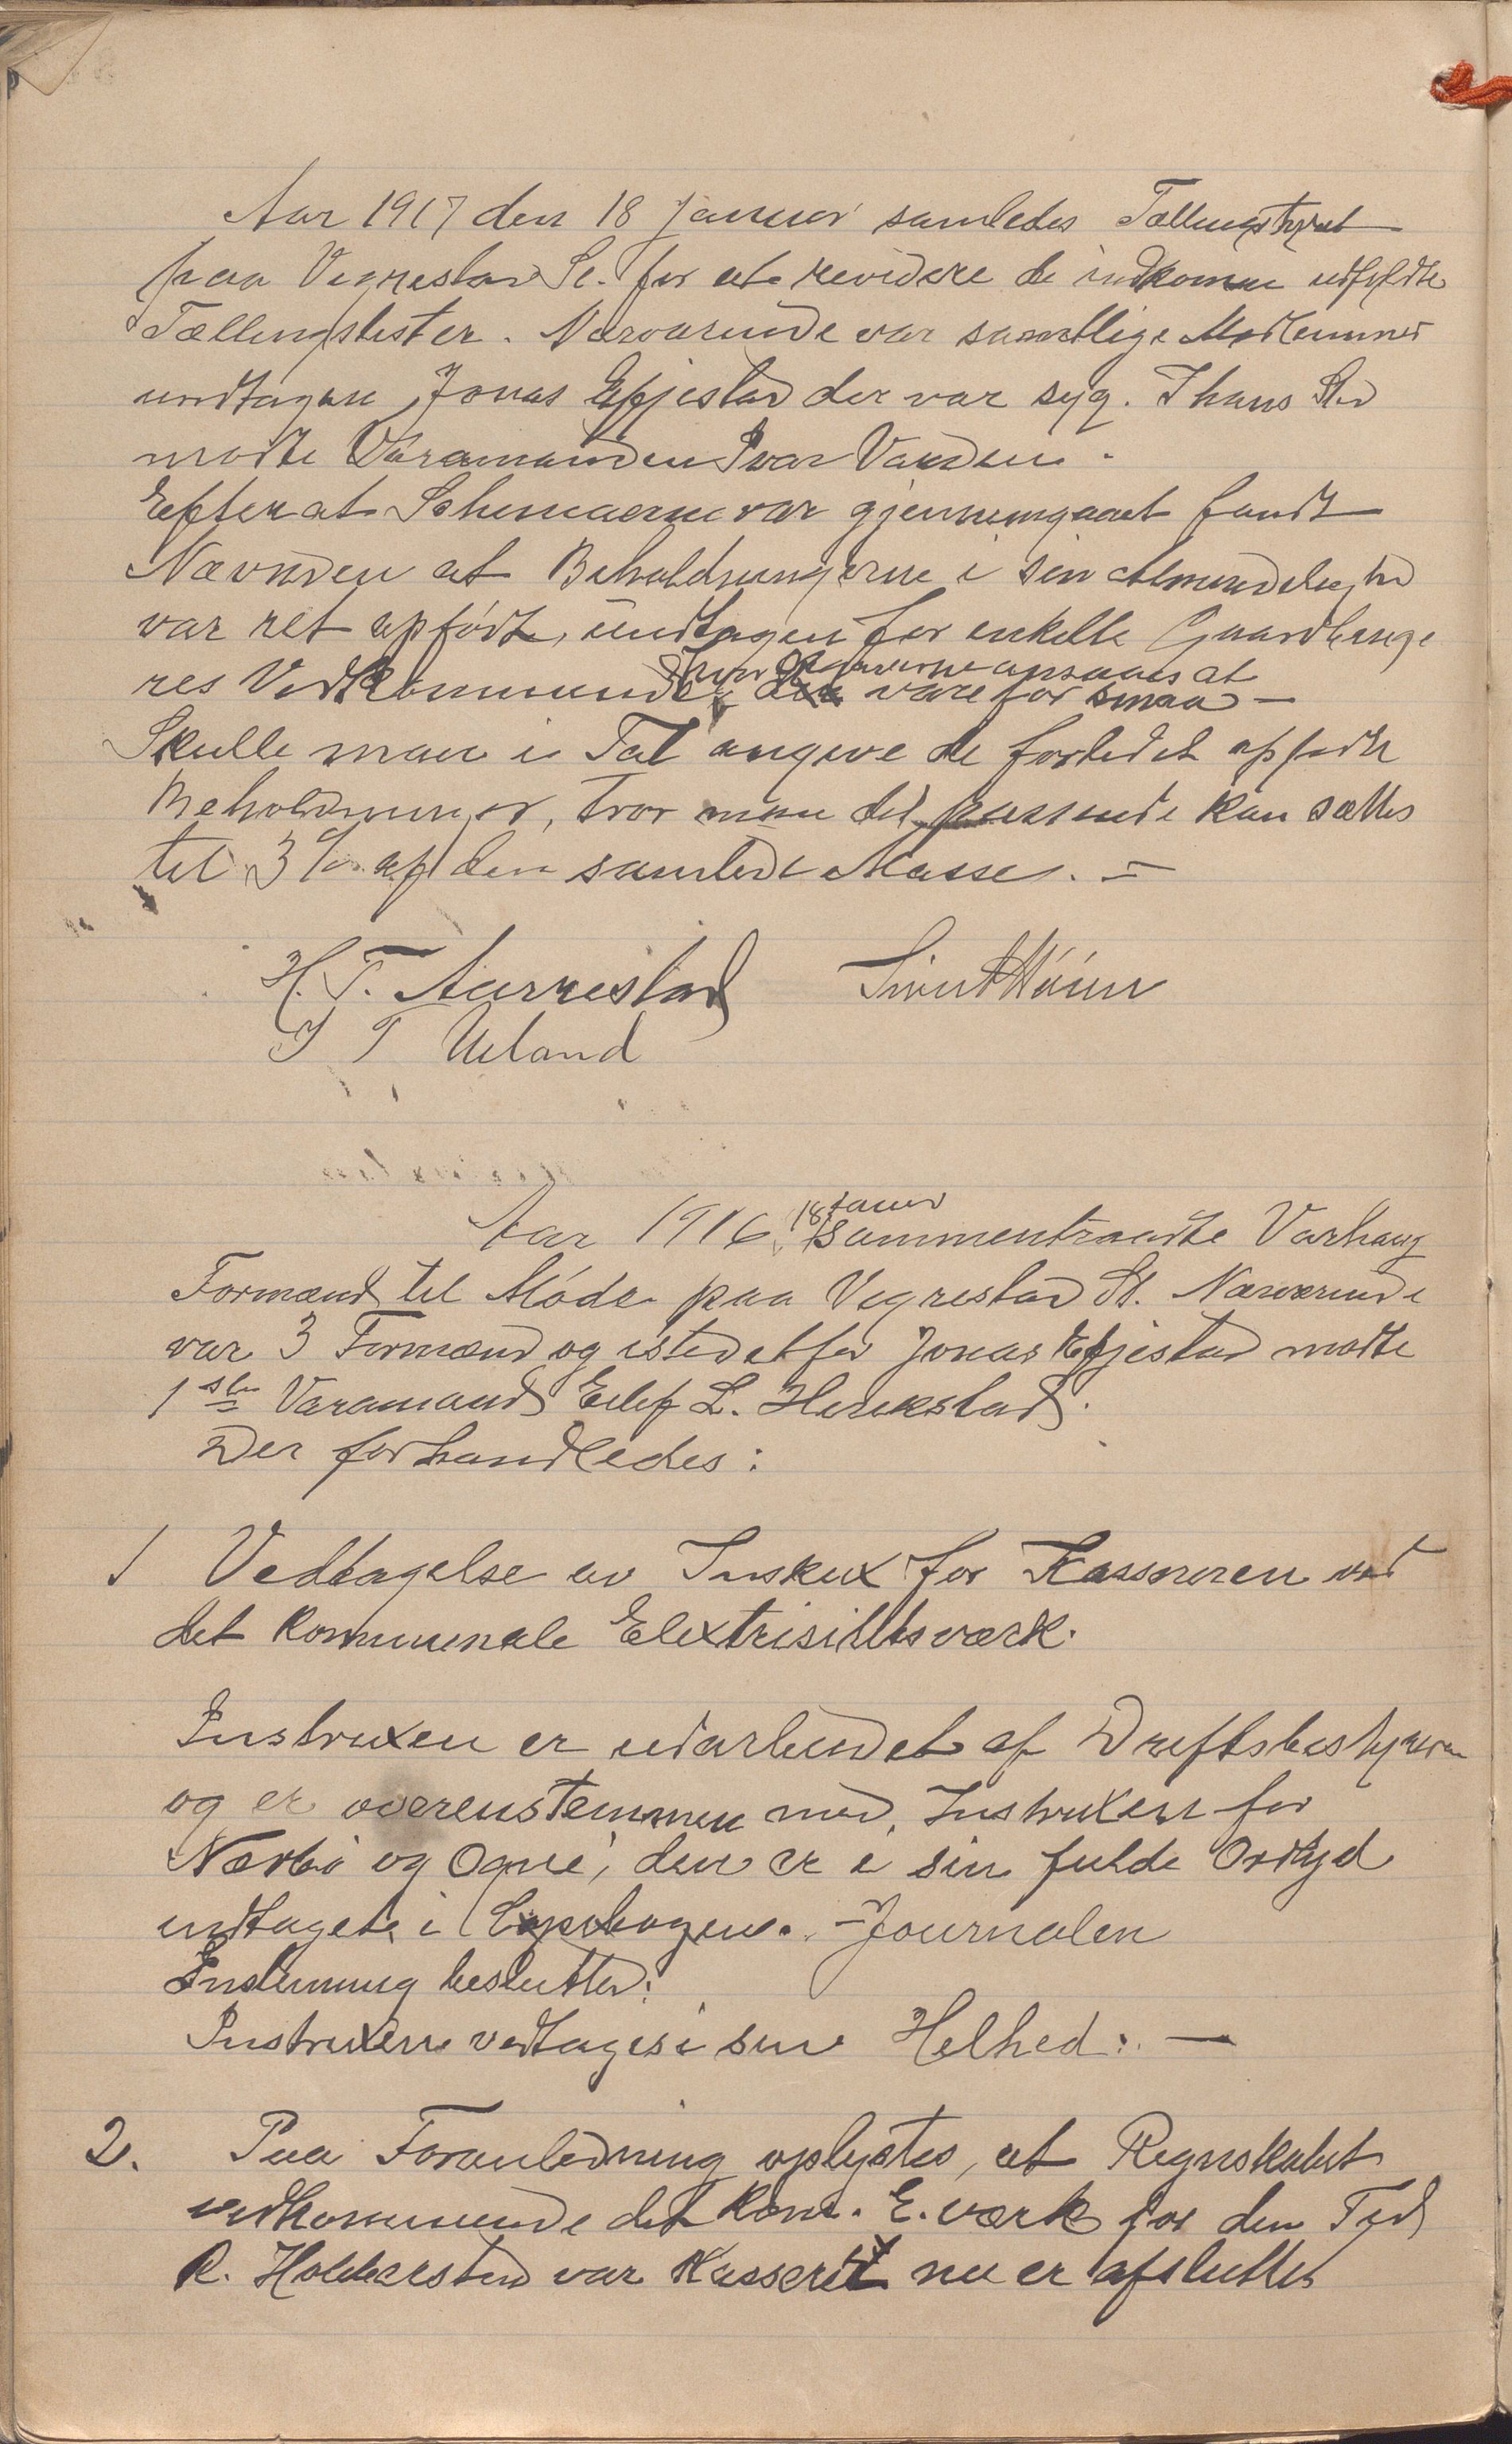 Aar 1917 den 18 Januar samledes Tællingstyret
paa Vigrestad St. for at revidere de indkomne udfyldte
Tællingslister. Nærværende var samtlige Medlemmer
undtagen Jonas Efjestad der var syg. I hans Sted
mødte Varamanden Ivar Varden.
Efter at Schemaerne var gjennemgaaet fandt
Nævnden at Beholdningerne i sin Almindelighed
var ret opført, undtagen for enkelte Gaardbruge
res Vedkommende, hvor Opgaverne ansaaes at
være for smaa -
Skulle man i Tal angive de forledet opførte
Beholdninger, tror man det passende kan sættes
til 3 % af den samlede Masse. -
H. T. Aarrestad Sivert
J T Ueland
Aar 1916 18/1 Januar sammentraadte Varhaug
Formænd til Møde paa Vigrestad St. Nærværende
var 3 Formænd og istedetfor Jonas Efjestad mødte
1ste Varamand Eilef L. Herikstad.
Der forhandledes:
1 Vedtagelse av Inskux for Kassereren ved
det kommunale Elextrisitetsværk.
Instruxen er udarbeidet af Driftsbestyreren
og er overenstemmen med Instruxen for
Nærbø og Ogne, den er i sin fulde Ordlyd
indtaget i Copibogen. - Journalen
Enstemmig besluttet:
Instruxen vedtages i sin Helhed. -
2. Paa Foranledning oplystes, at Regnskabet
vedkommende det Kom. E.værk for den Tid
R. Hobberstad var Kasserer nu er afsluttet